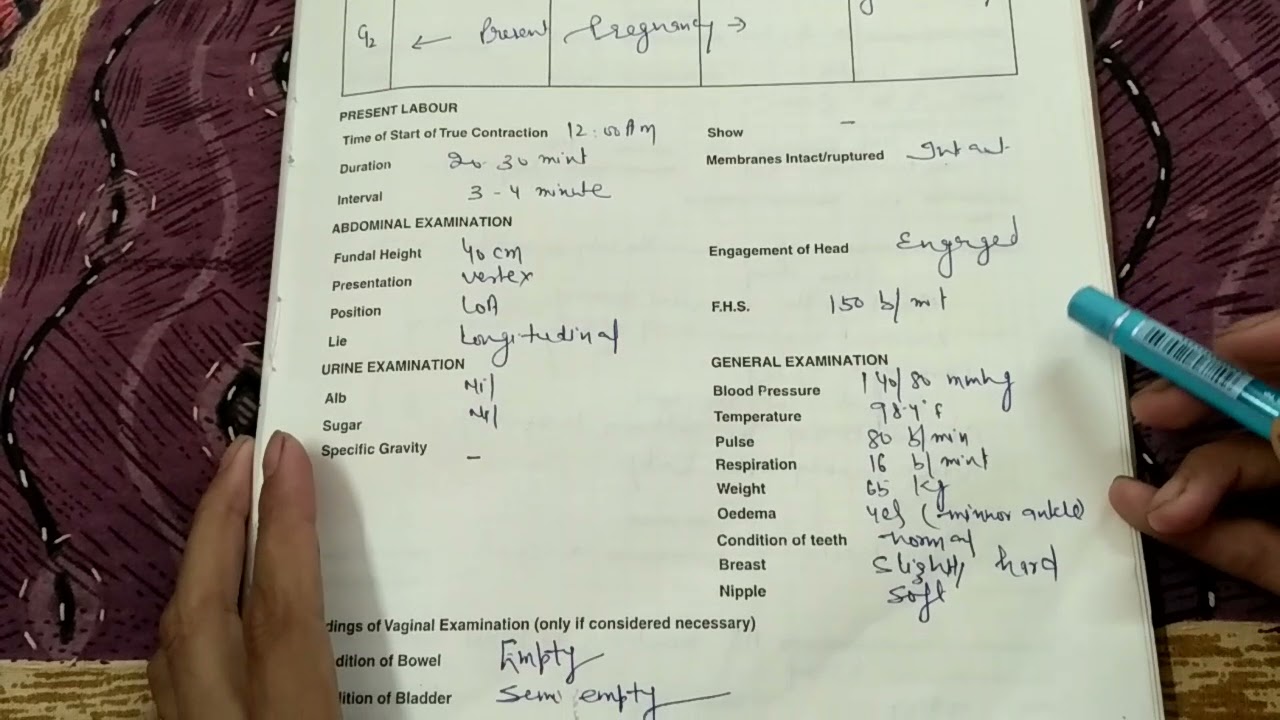 G2 ← Present Pregnancy →
PRESENT LABOUR
Time of Start of True Contraction 12:00 AM
Show –
Duration 20-30 mint
Membranes Intact/ruptured Intact
Interval 3-4 minute
ABDOMINAL EXAMINATION
Fundal Height 40 cm
Engagement of Head Engaged
Presentation vertex
Position LOA
F.H.S. 150 b/mt
Lie Longitudinal
URINE EXAMINATION
Alb Nil
Sugar Nil
Specific Gravity –
GENERAL EXAMINATION
Blood Pressure 140/80 mmhg
Temperature 98.4°f
Pulse 80 b/min
Respiration 16 b/mint
Weight 65 kg
Oedema yes (minnor ankle)
Condition of teeth normal
Breast Slightly hard
Nipple soft
dings of Vaginal Examination (only if considered necessary)
dition of Bowel Empty
dition of Bladder Semi empty